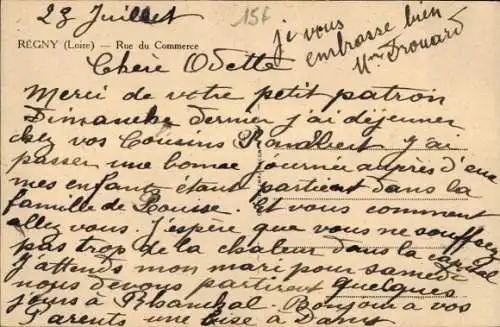 28 Juillet
15f
je vous
embrasse bien
Mme Drouard
RÉGNY (Loire) — Rue du Commerce
Chère Odette
Merci de votre petit patron
Dimanche dernier j'ai déjeuner
chez vos Cousins j'ai
passer une bonne journée auprès d'eux
mes enfants étant partient dans la
famille de Louise. Et vous comment
allez vous. J'espère que vous ne souffrez
pas trop de la chaleur dans la capital
J'attends mon mari pour samedi
nous devons partirent quelques
jours à Bonjour à vos
Parents une bise à